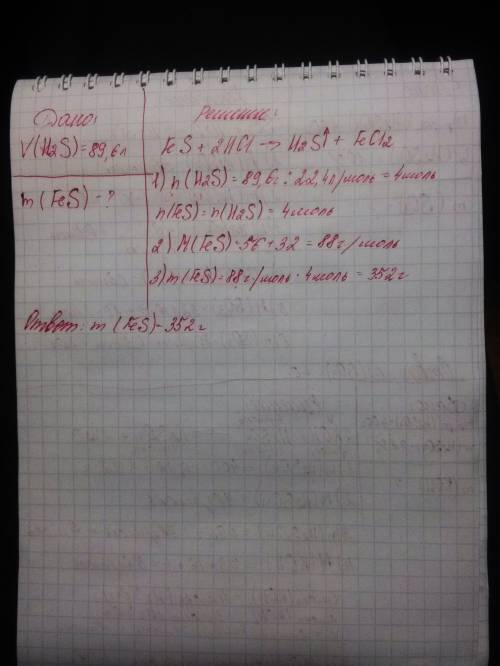 Дано:
V(H2S)=89,6л
m(FeS)-?
Решение:
FeS + 2HCl -> H2S↑ + FeCl2
1) n(H2S)=89,6г : 22,4л/моль = 4моль
n(FeS)=n(H2S)=4моль
2) M(FeS)=56+32=88г/моль
3) m(FeS)=88г/моль·4моль=352г
Ответ: m(FeS)-352г